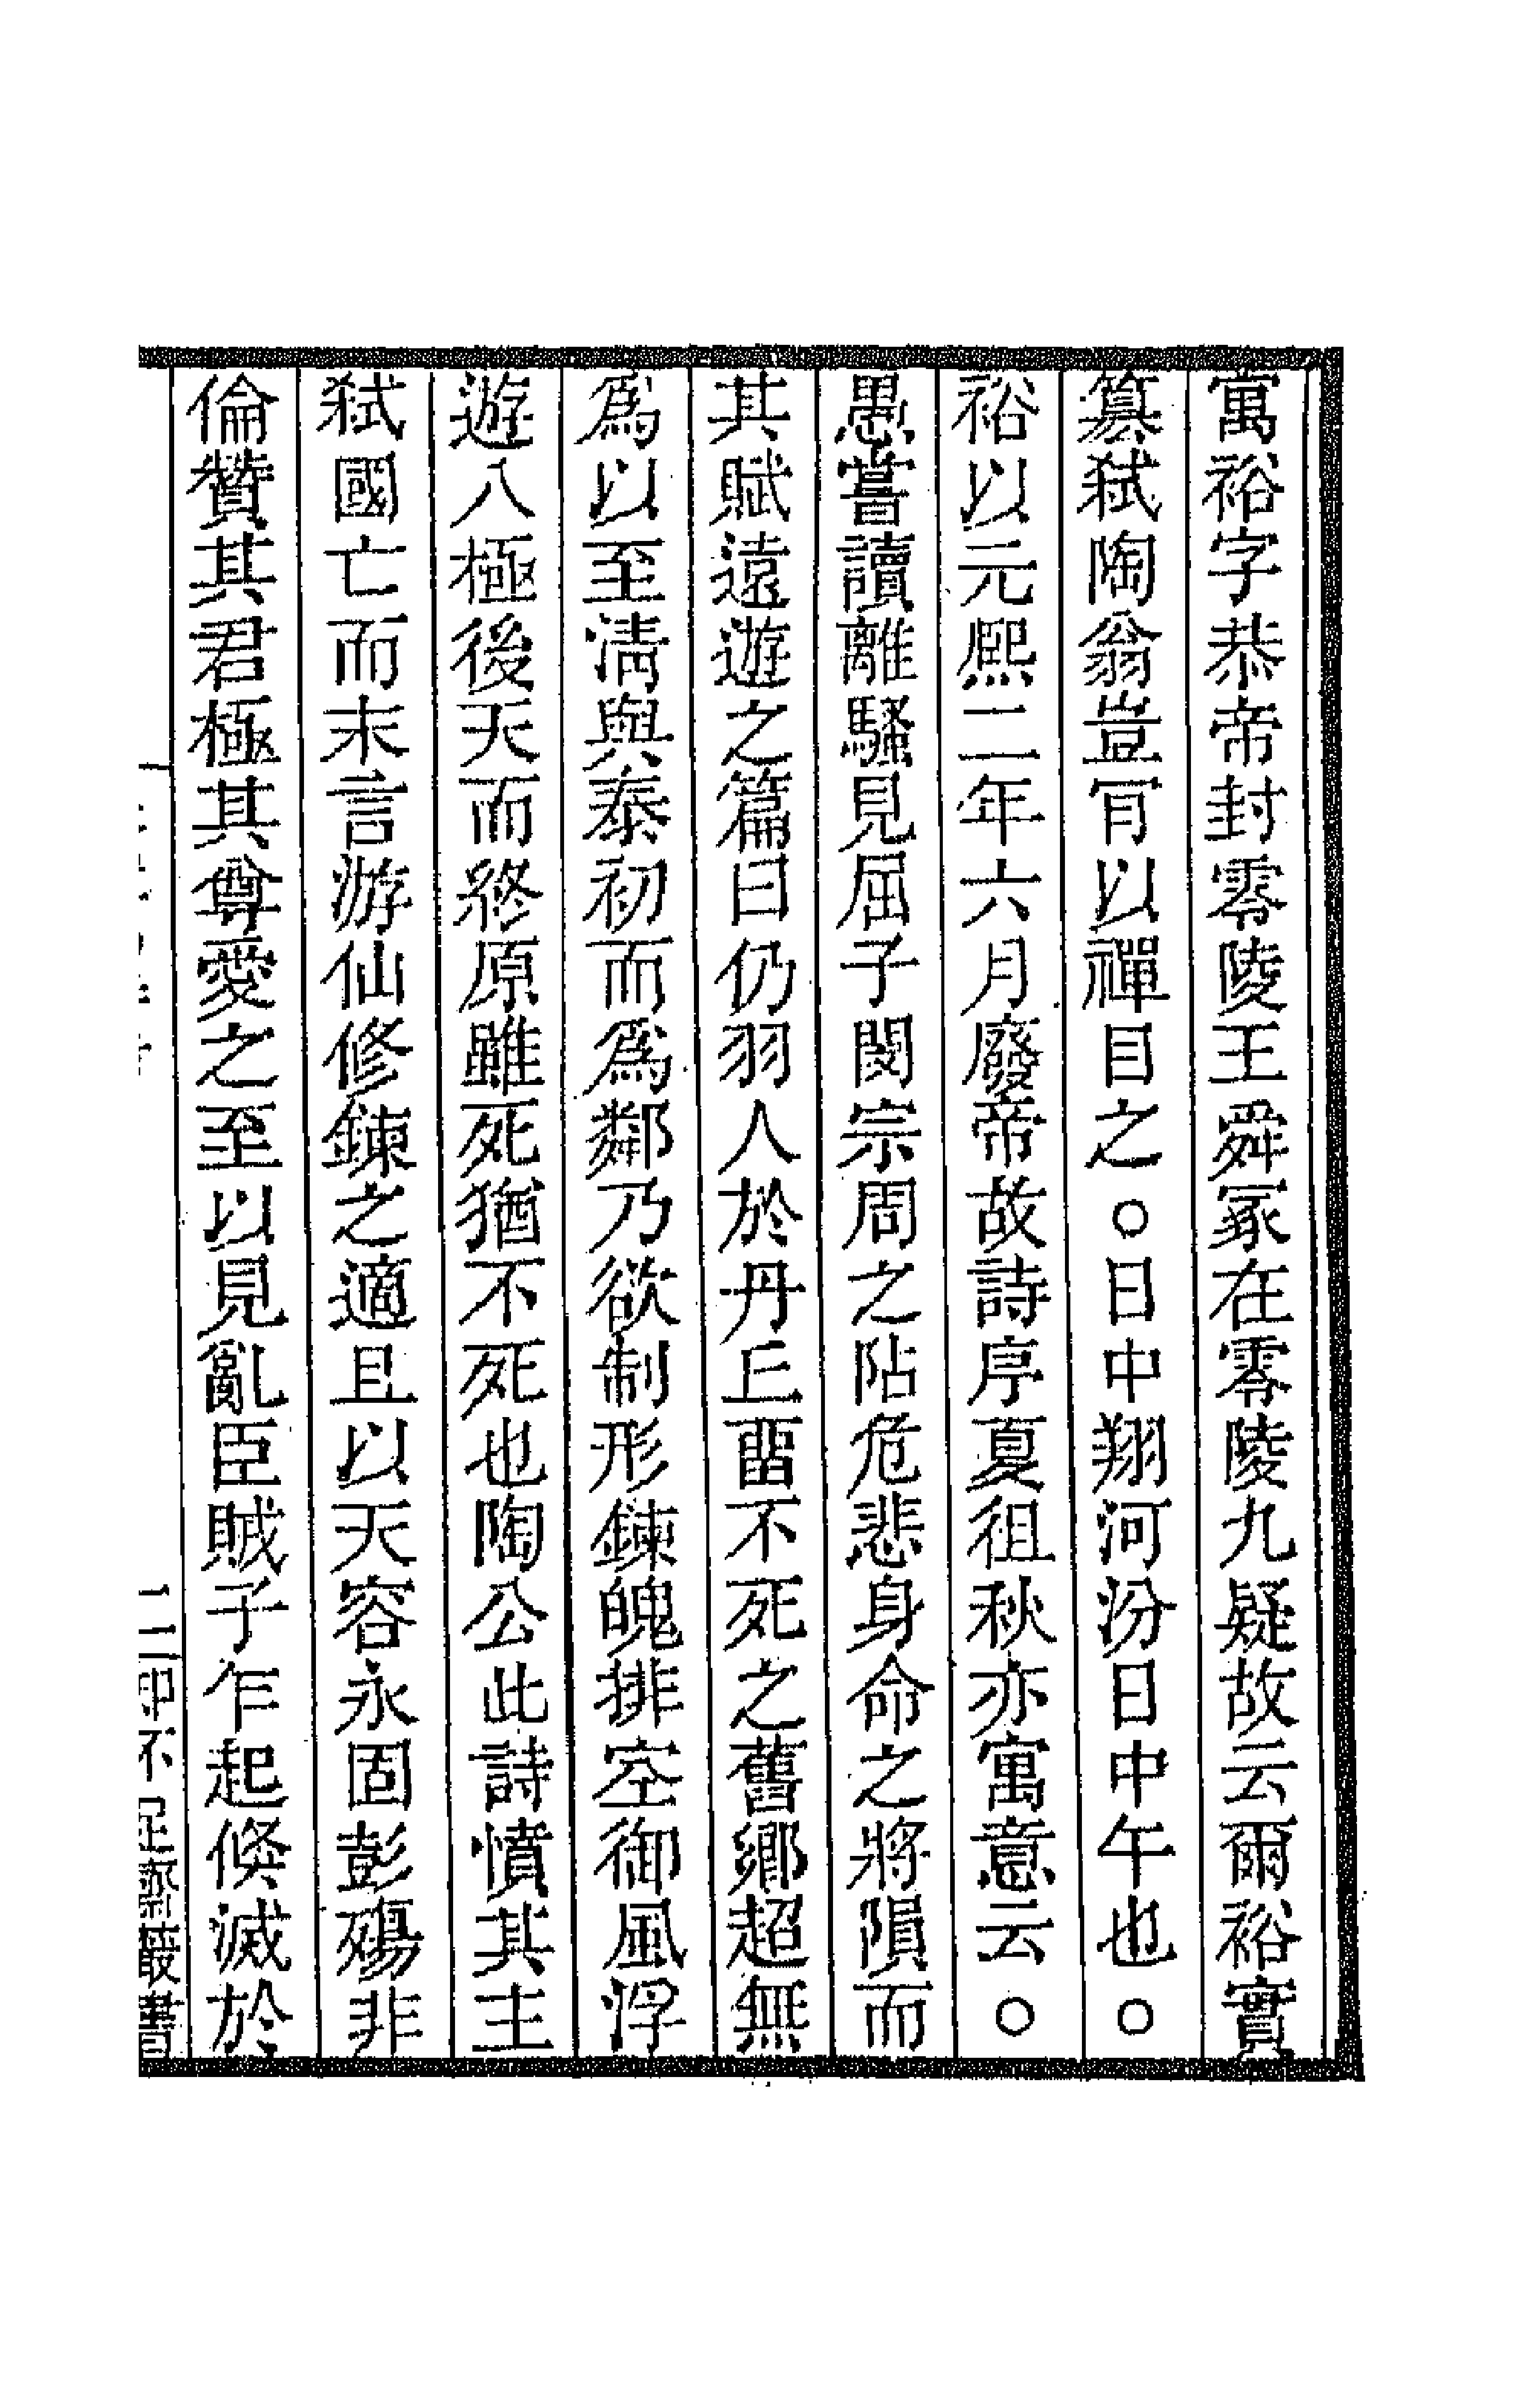 寓裕字恭帝封零陵王舜冢在零陵九疑故云爾裕實
篡弑陶翁豈肎以禪目之○日中翔河汾日中午也○
裕以元熙二年六月廢帝故詩序夏徂秋亦寓意云○
愚嘗讀離騷見屈子閔宗周之阽危悲身命之將隕而
其賦遠遊之篇曰仍羽人於丹丘畱不死之舊鄉超無
爲以至清與泰初而爲鄰乃欲制形鍊魄排空御風浮
遊八極後天而終原雖死猶不死也陶公此詩憤其主
弑國亡而末言游仙修鍊之適且以天容永固彭殤非
倫贊其君極其尊愛之至以見亂臣賊子乍起倏滅於
二 知不足齋叢書